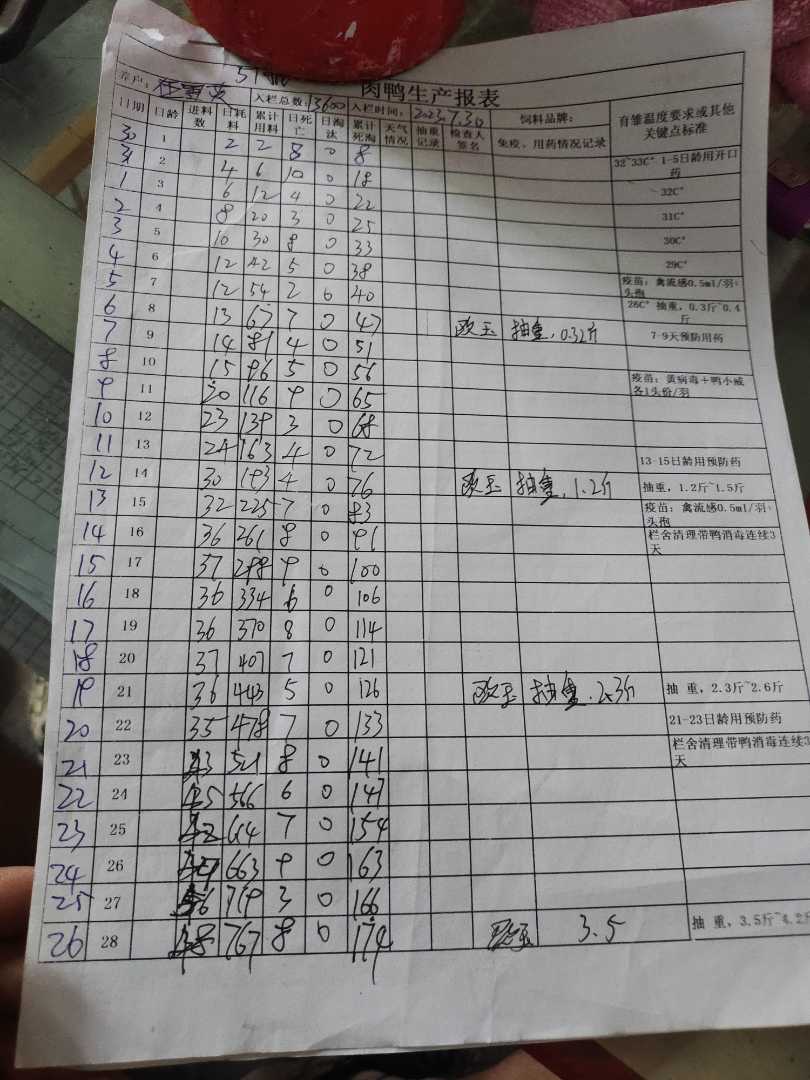 肉鸭生产报表
养户: 入栏总数:13600 入栏时间:2023.7.30 饲料品牌: 育雏温度要求或其他关键点标准
日期 日龄 进料数 日耗料 累计用料 日死亡 日淘汰 累计死淘 天气情况 抽重记录 检查人签名 免疫、用药情况记录
30 1 2 2 8 0 8 32~33C° 1-5日龄用开口药
31 2 4 6 10 0 18 32C°
1 3 6 12 4 0 22 31C°
2 4 8 20 3 0 25 30C°
3 5 10 30 8 0 33 29C°
4 6 12 42 5 0 38 疫苗:禽流感0.5ml/羽·头孢
5 7 12 54 2 0 40 28C° 抽重,0.3斤~0.4斤
6 8 13 67 7 0 47 抽重,0.32斤 7-9天预防用药
7 9 14 81 4 0 51
8 10 15 96 5 0 56 疫苗:黄病毒+鸭小威各1头份/羽
9 11 20 116 9 0 65
10 12 23 139 3 0 68
11 13 24 163 4 0 72 13-15日龄用预防药
12 14 30 193 4 0 76 抽重,1.2斤 抽重,1.2斤~1.5斤
13 15 32 225 7 0 83 疫苗:禽流感0.5ml/羽·头孢
14 16 36 261 8 0 91 栏舍清理带鸭消毒连续3天
15 17 37 298 9 0 100
16 18 36 334 6 0 106
17 19 36 370 8 0 114
18 20 37 407 7 0 121
19 21 36 443 5 0 126 抽重,2.3斤 抽 重,2.3斤~2.6斤
20 22 35 478 7 0 133 21-23日龄用预防药
21 23 43 521 8 0 141 栏舍清理带鸭消毒连续3天
22 24 45 566 6 0 147
23 25 614 7 0 154
24 26 663 9 0 163
25 27 56 719 3 0 166
26 28 48 767 8 0 174 3.5 抽 重,3.5斤~4.2斤